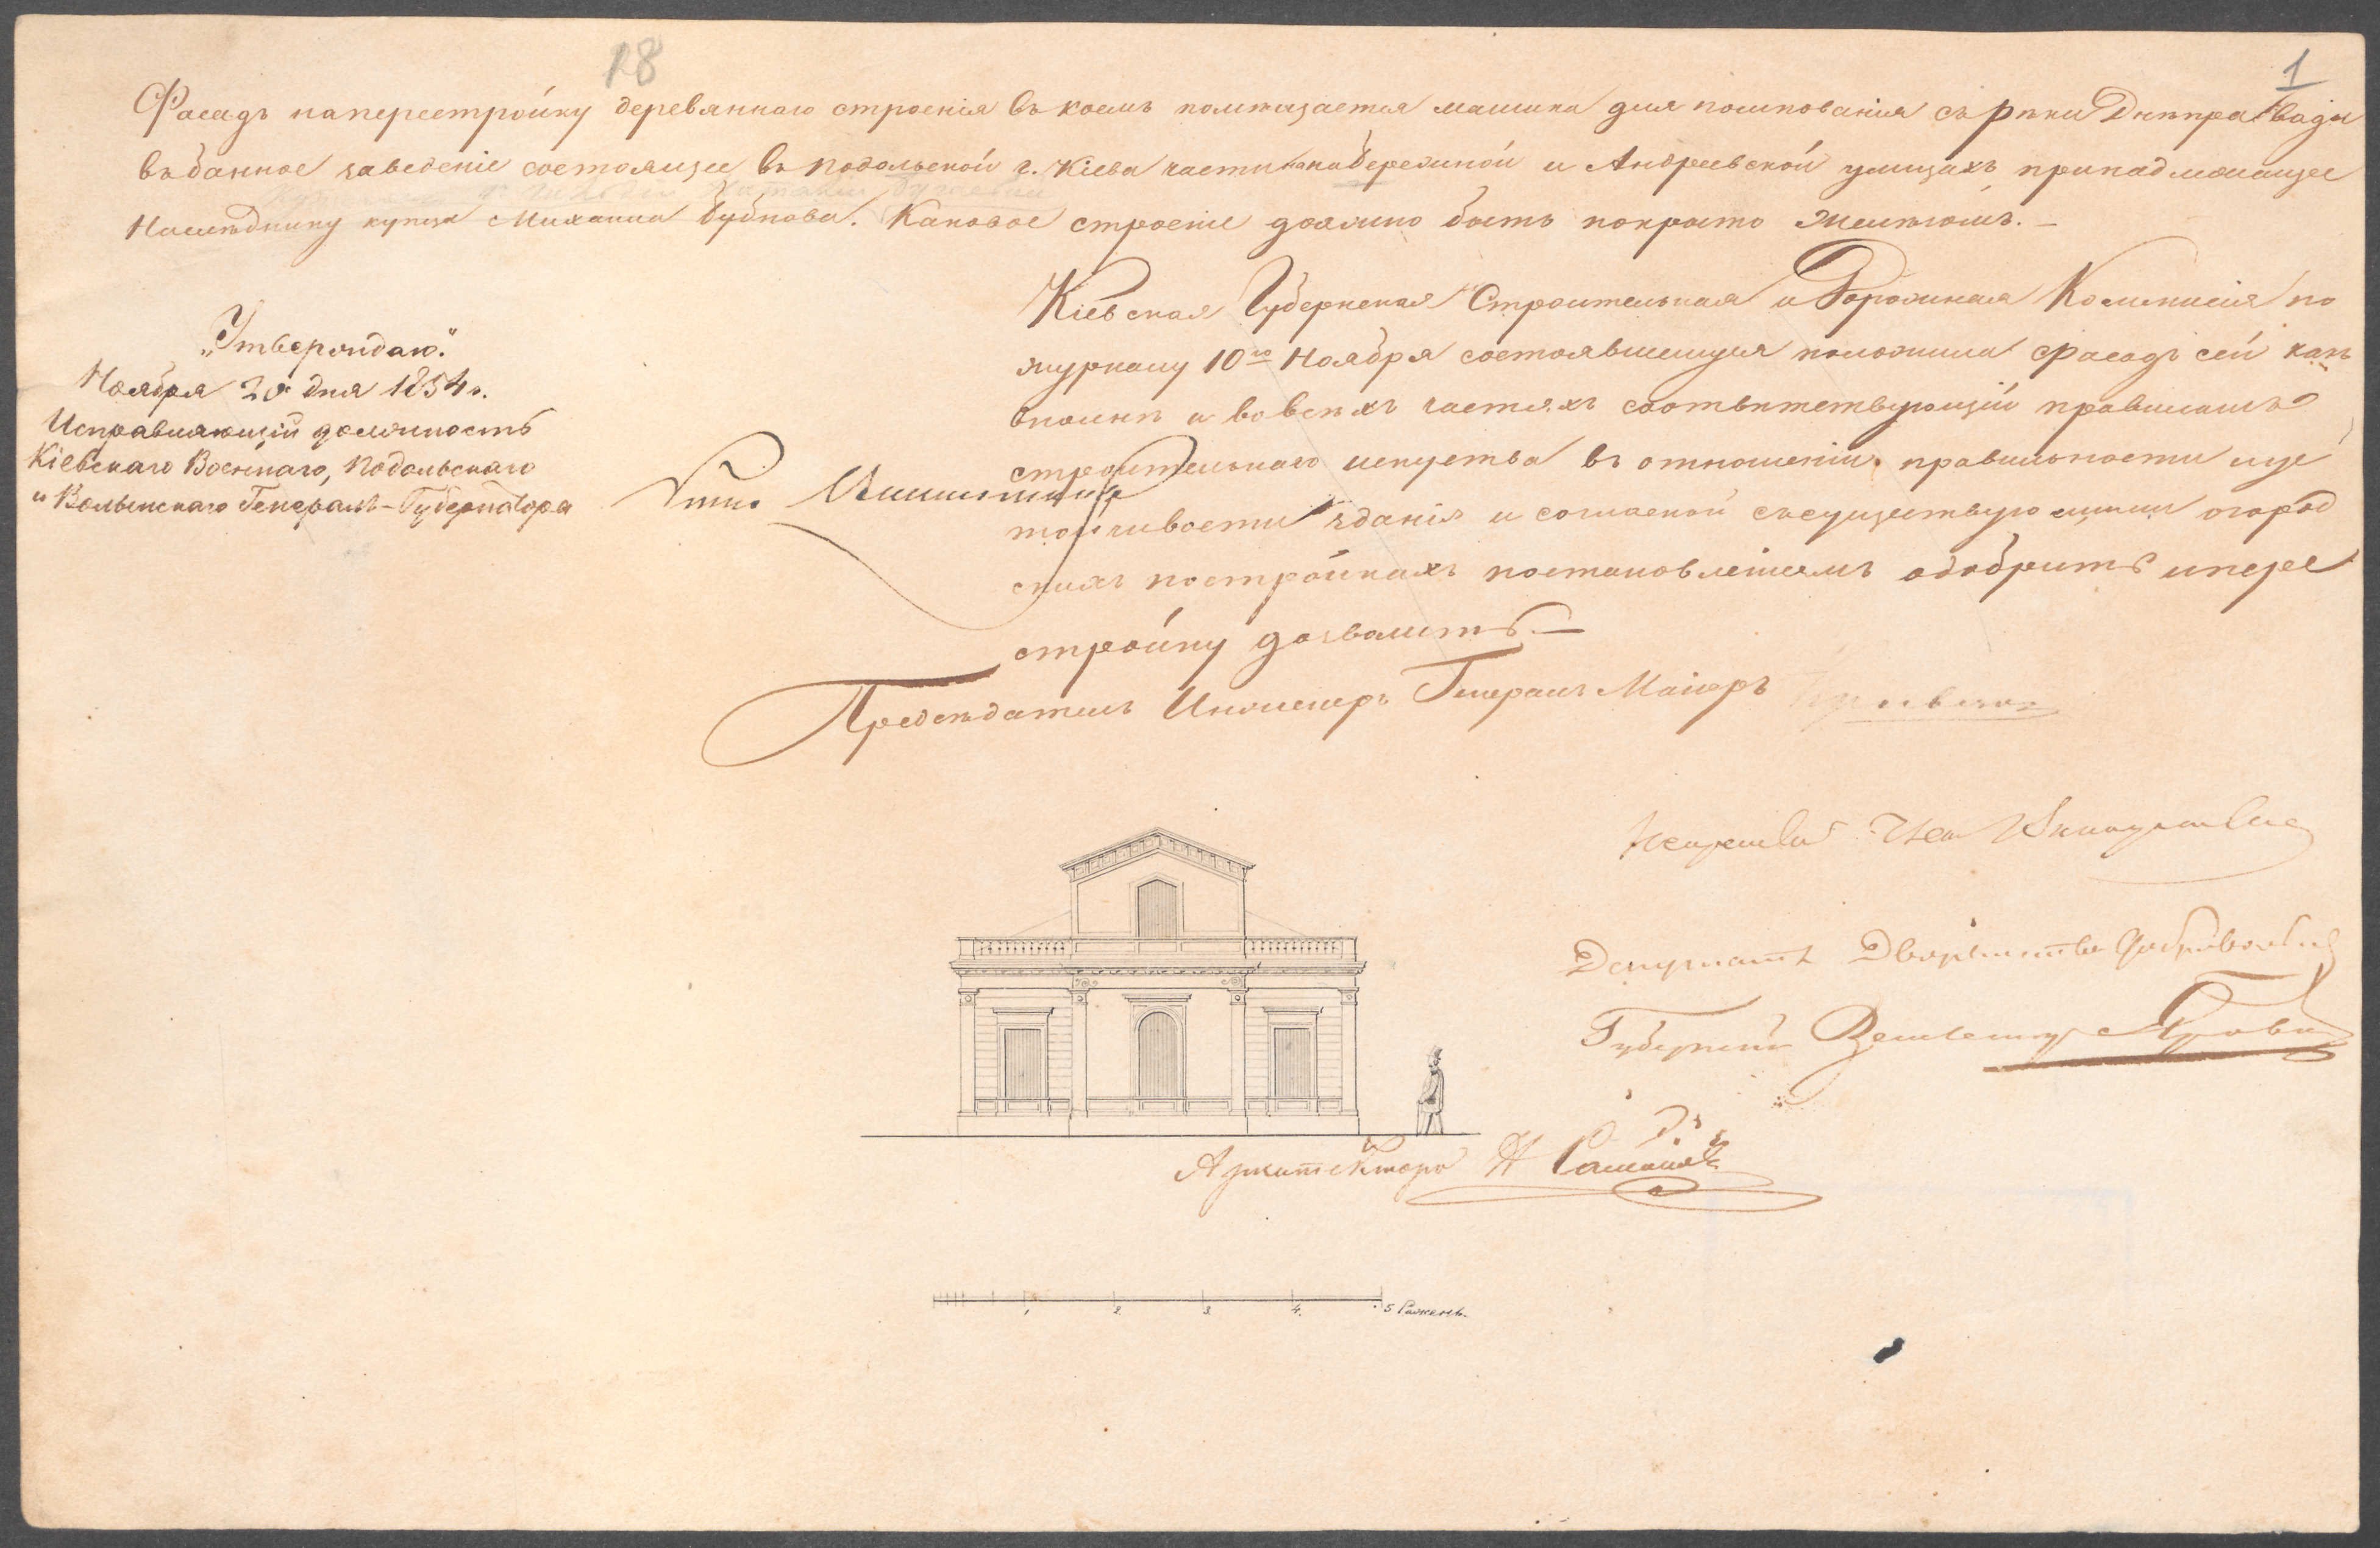 18
1
Фасадъ на перестройку деревяннаго строенія въ коемъ помѣщается машина для помпованія съ рѣки Днѣпра воды
въ банное заведеніе состоящее въ Подольской г. Кіева части на набережной и Андреевской улицахъ принадлежащее
Наслѣднику купца Михаила Бубнова. Каковое строеніе должно быть покрыто желѣзомъ. —
Кіевская Губернская Строительная и Дорожная Коммисія по
журналу 10го Ноября состоявшемуся положила фасадъ сей какъ
вполнѣ и во всѣхъ частяхъ соотвѣтствующій правиламъ
строительнаго искуства въ отношеніи правильности и ус
тойчивости зданія и согласной съ существующими о город
скихъ постройкахъ постановленіямъ одобрить и пере
стройку дозволить. —
„Утверждаю."
Ноября 20 дня 1854 г.
Исправляющій должность
Кіевскаго Военнаго, Подольскаго
и Волынскаго Генералъ-Губернатора
Предсѣдатель Инженеръ Генералъ Маіоръ
Депутатъ Дворянства
Губернскій Землемѣръ
Архитекторъ
1 2 3 4 5 Сажень.